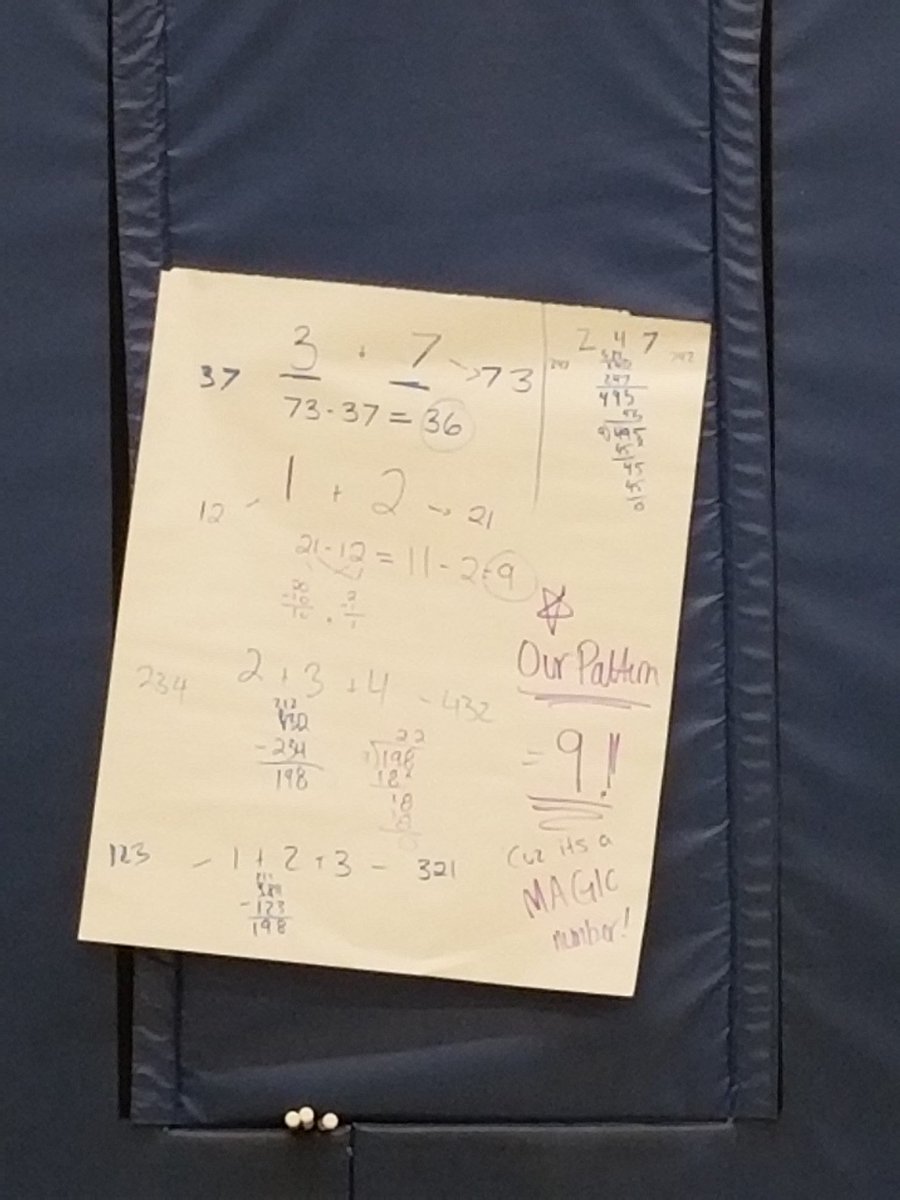 3 · 7
37 → 73
73 - 37 = 36
1 + 2
12 - → 21
21 - 12 = 11 - 2 = 9
2 + 3 + 4
234 - 432
- 234
198
22
198
18
18
123 - 1 + 2 + 3 - 321
- 123
198
2 4 7
247
495
45
45
0
Our Pattern
= 9!
Cuz its a
MAGIC
number!